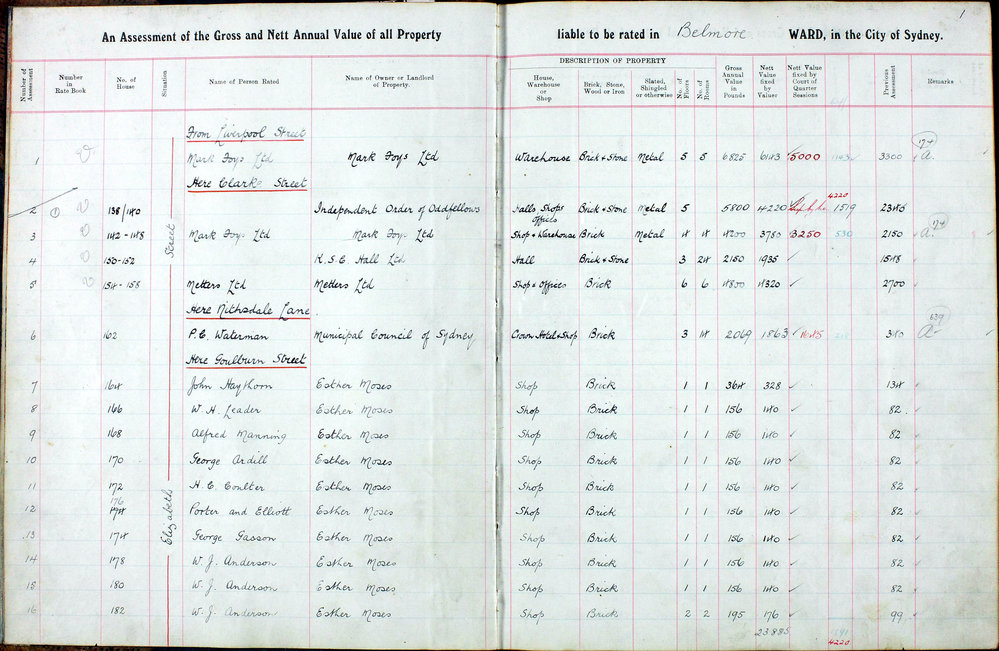 1
An Assessment of the Gross and Nett Annual Value of all Property liable to be rated in Belmore WARD, in the City of Sydney.
DESCRIPTION OF PROPERTY
Number of Assessment | Number in Rate Book | No. of House | Situation | Name of Person Rated | Name of Owner or Landlord of Property. | House, Warehouse or Shop | Brick, Stone, Wood or Iron | Slated, Shingled or otherwise | No. of Floors | No. of Rooms | Gross Annual Value in Pounds | Nett Value fixed by Valuer | Nett Value fixed by Court of Quarter Sessions | Previous Assessment | Remarks
Elizabeth Street
From Liverpool Street
174
1 Mark Foys Ltd Mark Foys Ltd Warehouse Brick & Stone Metal 5 5 6825 6143 5000 1143 3300 A.
Here Clarke Street
4220
2 138/140 Independent Order of Oddfellows Halls Shops Offices Brick & Stone Metal 5 5800 4220 1519 2346
174
3 142-148 Mark Foys Ltd Mark Foys Ltd Shop & Warehouse Brick Metal 4 4 4200 3780 3250 530 2150 A.
4 150-152 R.S.C. Hall Ltd Hall Brick & Stone 3 24 2150 1935 1548
5 154-158 Metters Ltd Metters Ltd Shop & Offices Brick 6 6 4800 4320 2700
Here Nithsdale Lane.
639
6 162 P.C. Waterman Municipal Council of Sydney Crown Hotel & Shop Brick 3 14 2069 1863 1645 340 A.
Here Goulburn Street
7 164 John Haythorn Esther Moses Shop Brick 1 1 364 328 134
8 166 W.H. Leader Esther Moses Shop Brick 1 1 156 140 82
9 168 Alfred Manning Esther Moses Shop Brick 1 1 156 140 82
10 170 George Ardill Esther Moses Shop Brick 1 1 156 140 82
11 172 H.C. Coulter Esther Moses Shop Brick 1 1 156 140 82
176
12 174 Porter and Elliott Esther Moses Shop Brick 1 1 156 140 82
13 174 George Gasson Esther Moses Shop Brick 1 1 156 140 82
14 178 W.J. Anderson Esther Moses Shop Brick 1 1 156 140 82
15 180 W.J. Anderson Esther Moses Shop Brick 1 1 156 140 82
16 182 W.J. Anderson Esther Moses Shop Brick 2 2 195 176 99
23885
4220